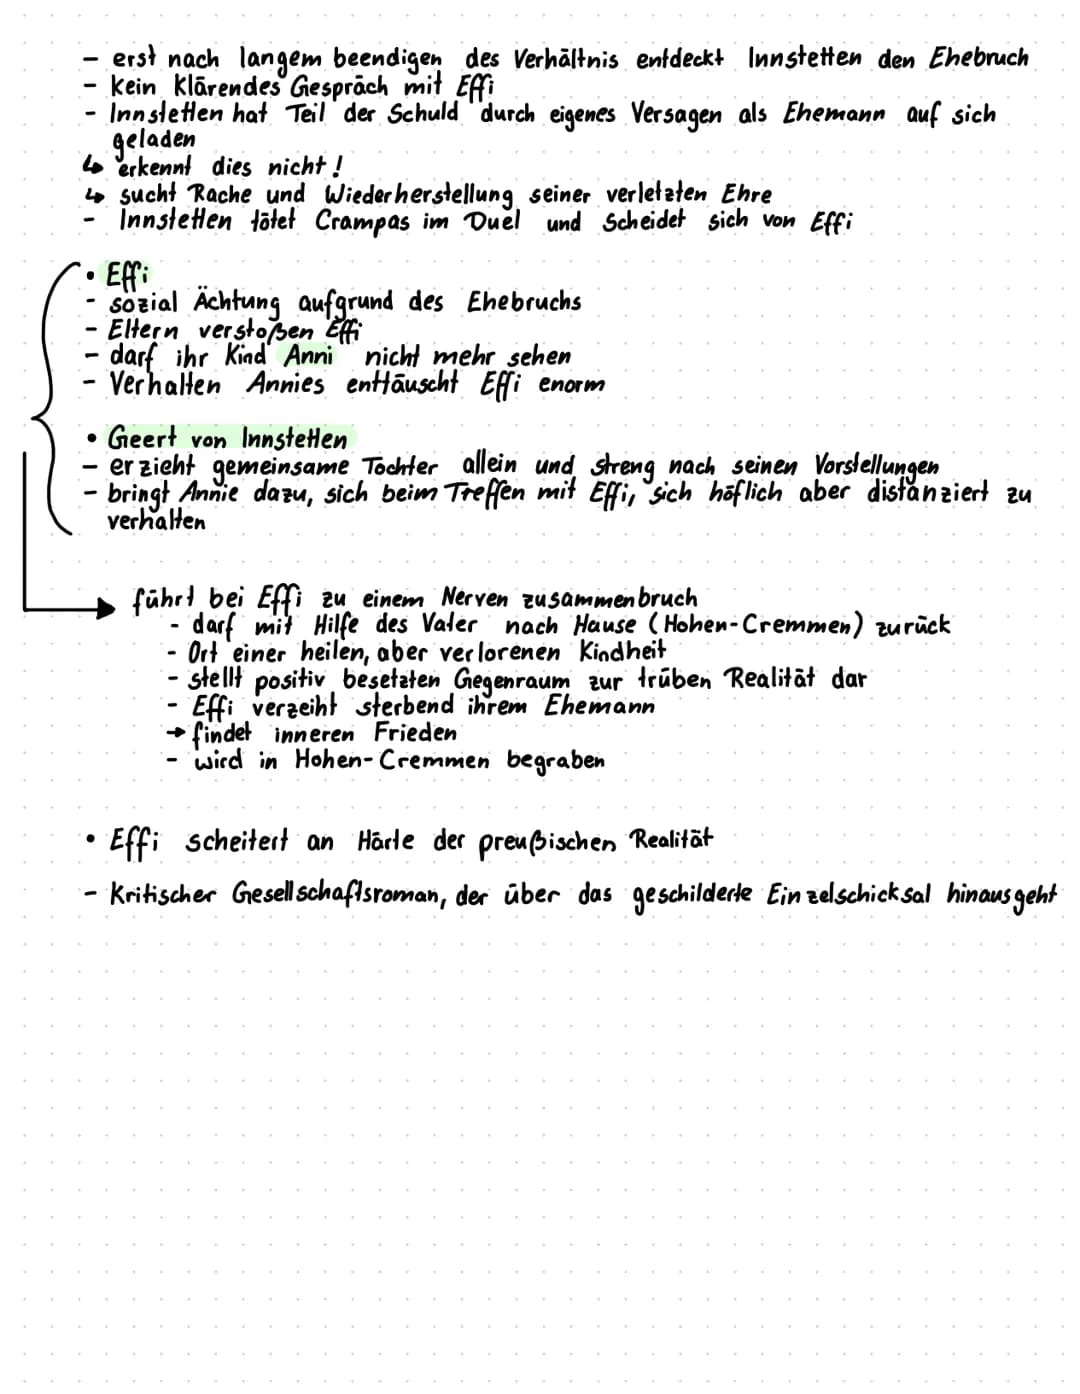 - erst nach langem beendigen des Verhältnis entdeckt Innstetten den Ehebruch
- kein Klärendes Gespräch mit Effi
- Innstetten hat Teil der Schuld durch eigenes Versagen als Ehemann auf sich
geladen
↳ erkennt dies nicht!
↳ sucht Rache und Wiederherstellung seiner verletzten Ehre
- Innstetten tötet Crampas im Duel und Scheidet sich von Effi
• Effi
- sozial Ächtung aufgrund des Ehebruchs
- Eltern verstoßen Effi
- darf ihr Kind Anni nicht mehr sehen
- Verhalten Annies enttäuscht Effi enorm
• Geert von Innstetten
- erzieht gemeinsame Tochter allein und streng nach seinen Vorstellungen
- bringt Annie dazu, sich beim Treffen mit Effi, sich höflich aber distanziert zu
verhalten
führt bei Effi zu einem Nervenzusammenbruch
- darf mit Hilfe des Vater nach Hause (Hohen-Cremmen) zurück
- Ort einer heilen, aber verlorenen Kindheit
- stellt positiv besetzten Gegenraum zur trüben Realität dar
- Effi verzeiht sterbend ihrem Ehemann
→ findet inneren Frieden
- wird in Hohen-Cremmen begraben
• Effi scheitert an Härte der preußischen Realität
- Kritischer Gesellschaftsroman, der über das geschilderte Einzelschicksal hinausgeht